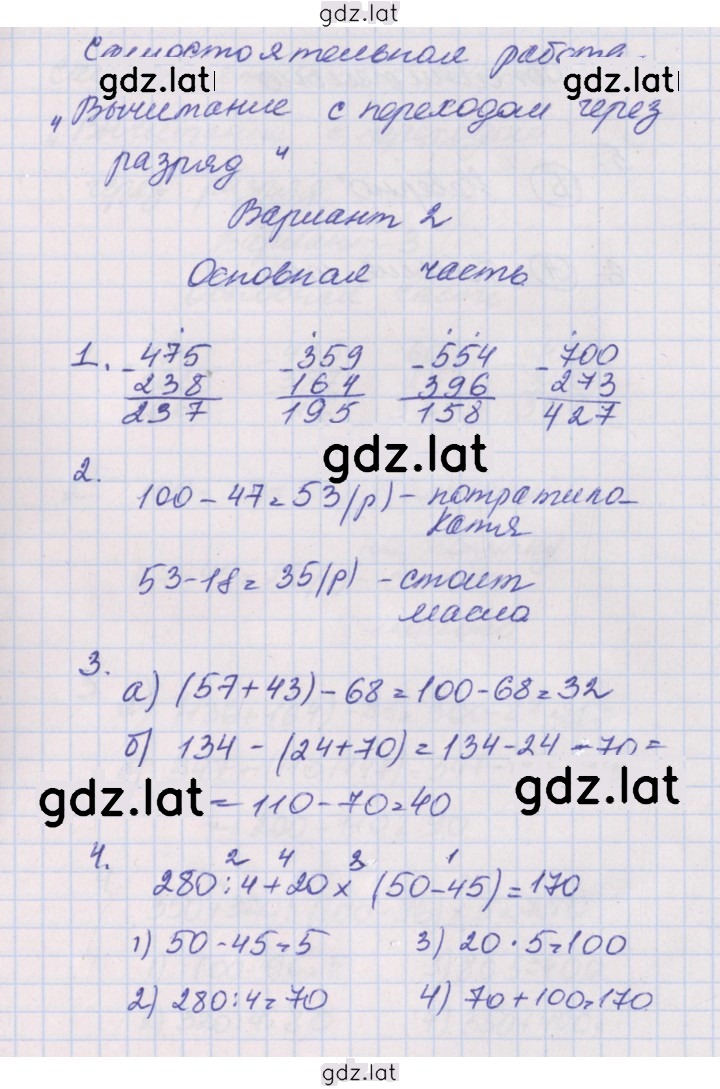 gdz.lat
Самостоятельная работа.
gdz.lat gdz.lat
„Вычитание с переходом через
разряд“
Вариант 2
Основная часть
1. -475 -359 -554 -700
238 164 396 273
237 195 158 427
gdz.lat
2.
100-47=53(р)-потратила
Катя
53-18=35(р)-стоит
масло
3.
а) (57+43)-68=100-68=32
б) 134-(24+70)=134-24-70=
gdz.lat gdz.lat
=110-70=40
4.
2 4 3 1
280:4+20x(50-45)=170
1) 50-45=5 3) 20·5=100
2) 280:4=70 4) 70+100=170
gdz.lat